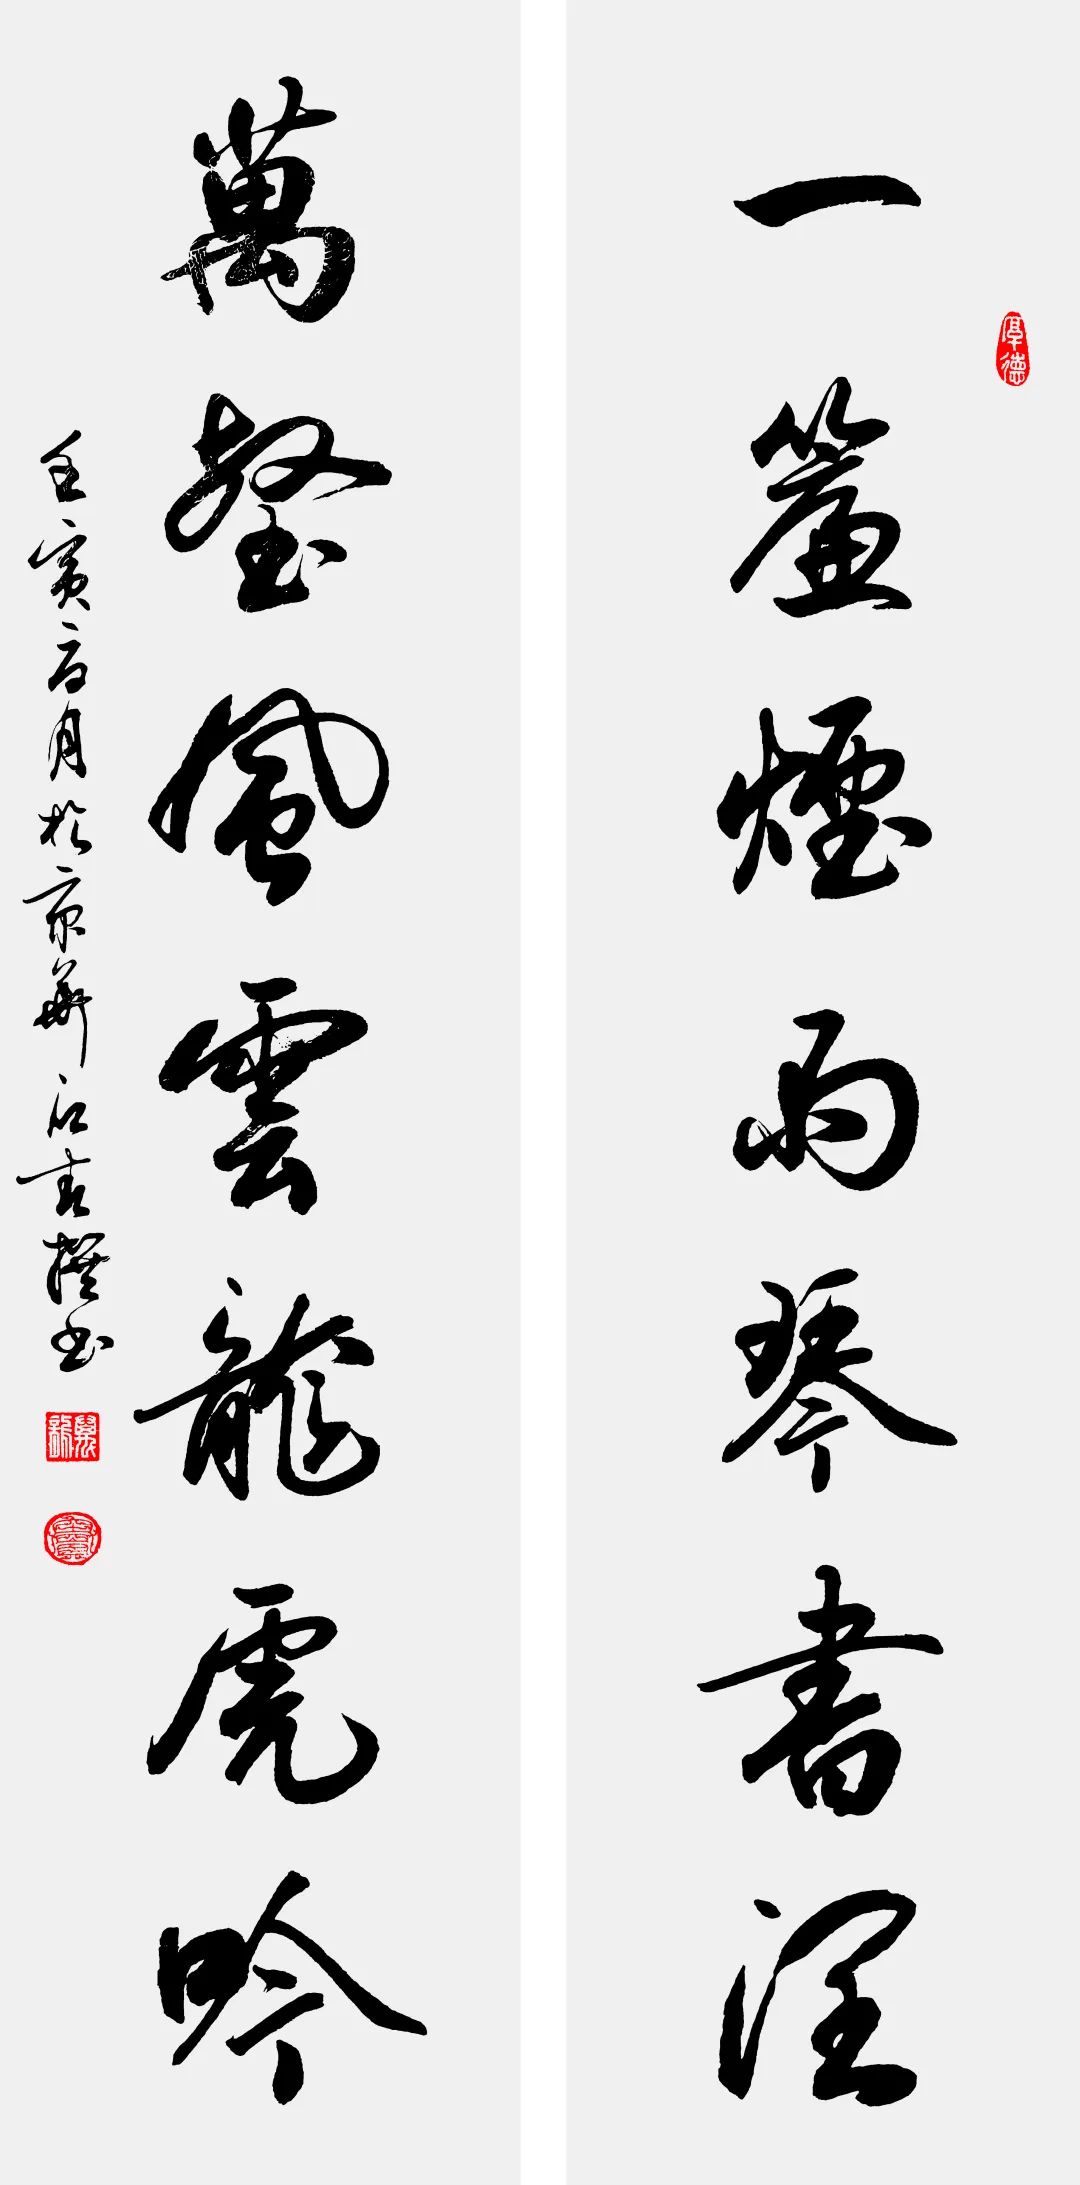 一簾煙雨琴書潤
厚德
萬壑風雲龍虎吟
壬寅夏月於京華撰书